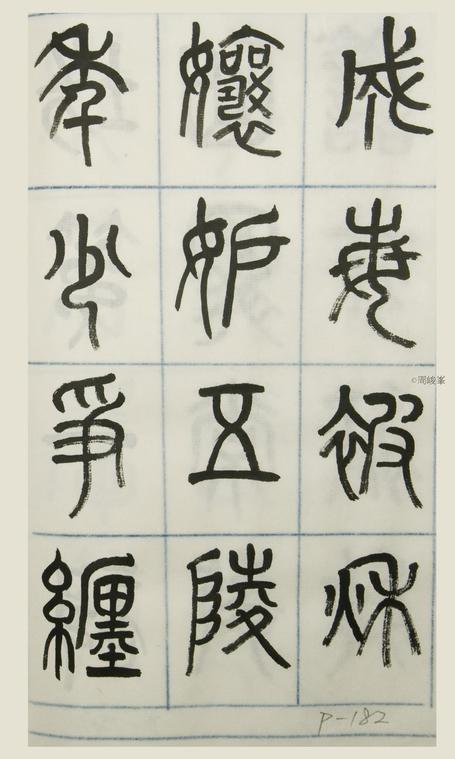 成每被秋
孃妒五陵
年少爭纏
©周峻峯
P-182